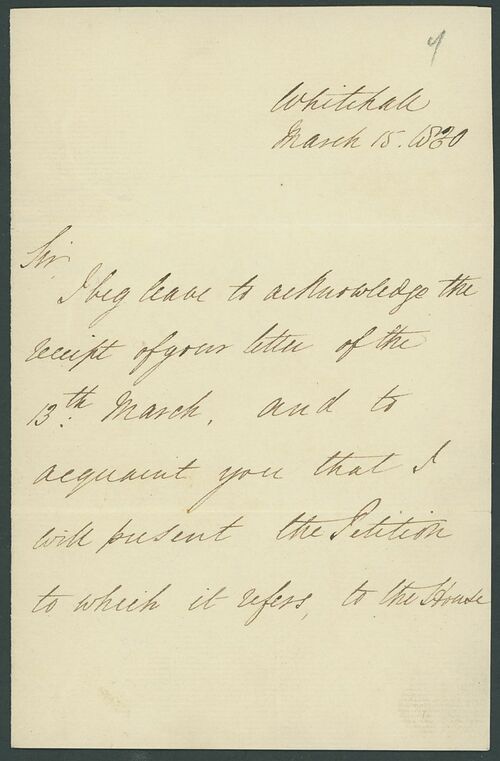 Whitehall
March 15. 1830
Sir
I beg leave to acknowledge the
receipt of your letter of the
13th March, and to
acquaint you that I
will present the Petition
to which it refers, to the House